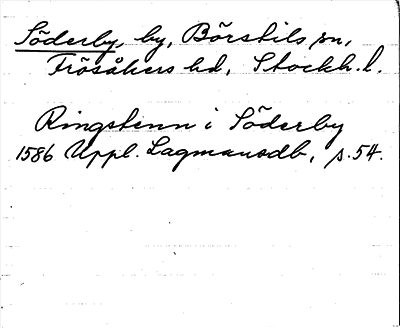 Söderby, by, Börstils sn,
Frösåkers hd, Stockh. l.
Ringstenn i Söderby
1586 Uppl. Lagmansdb, s. 54.